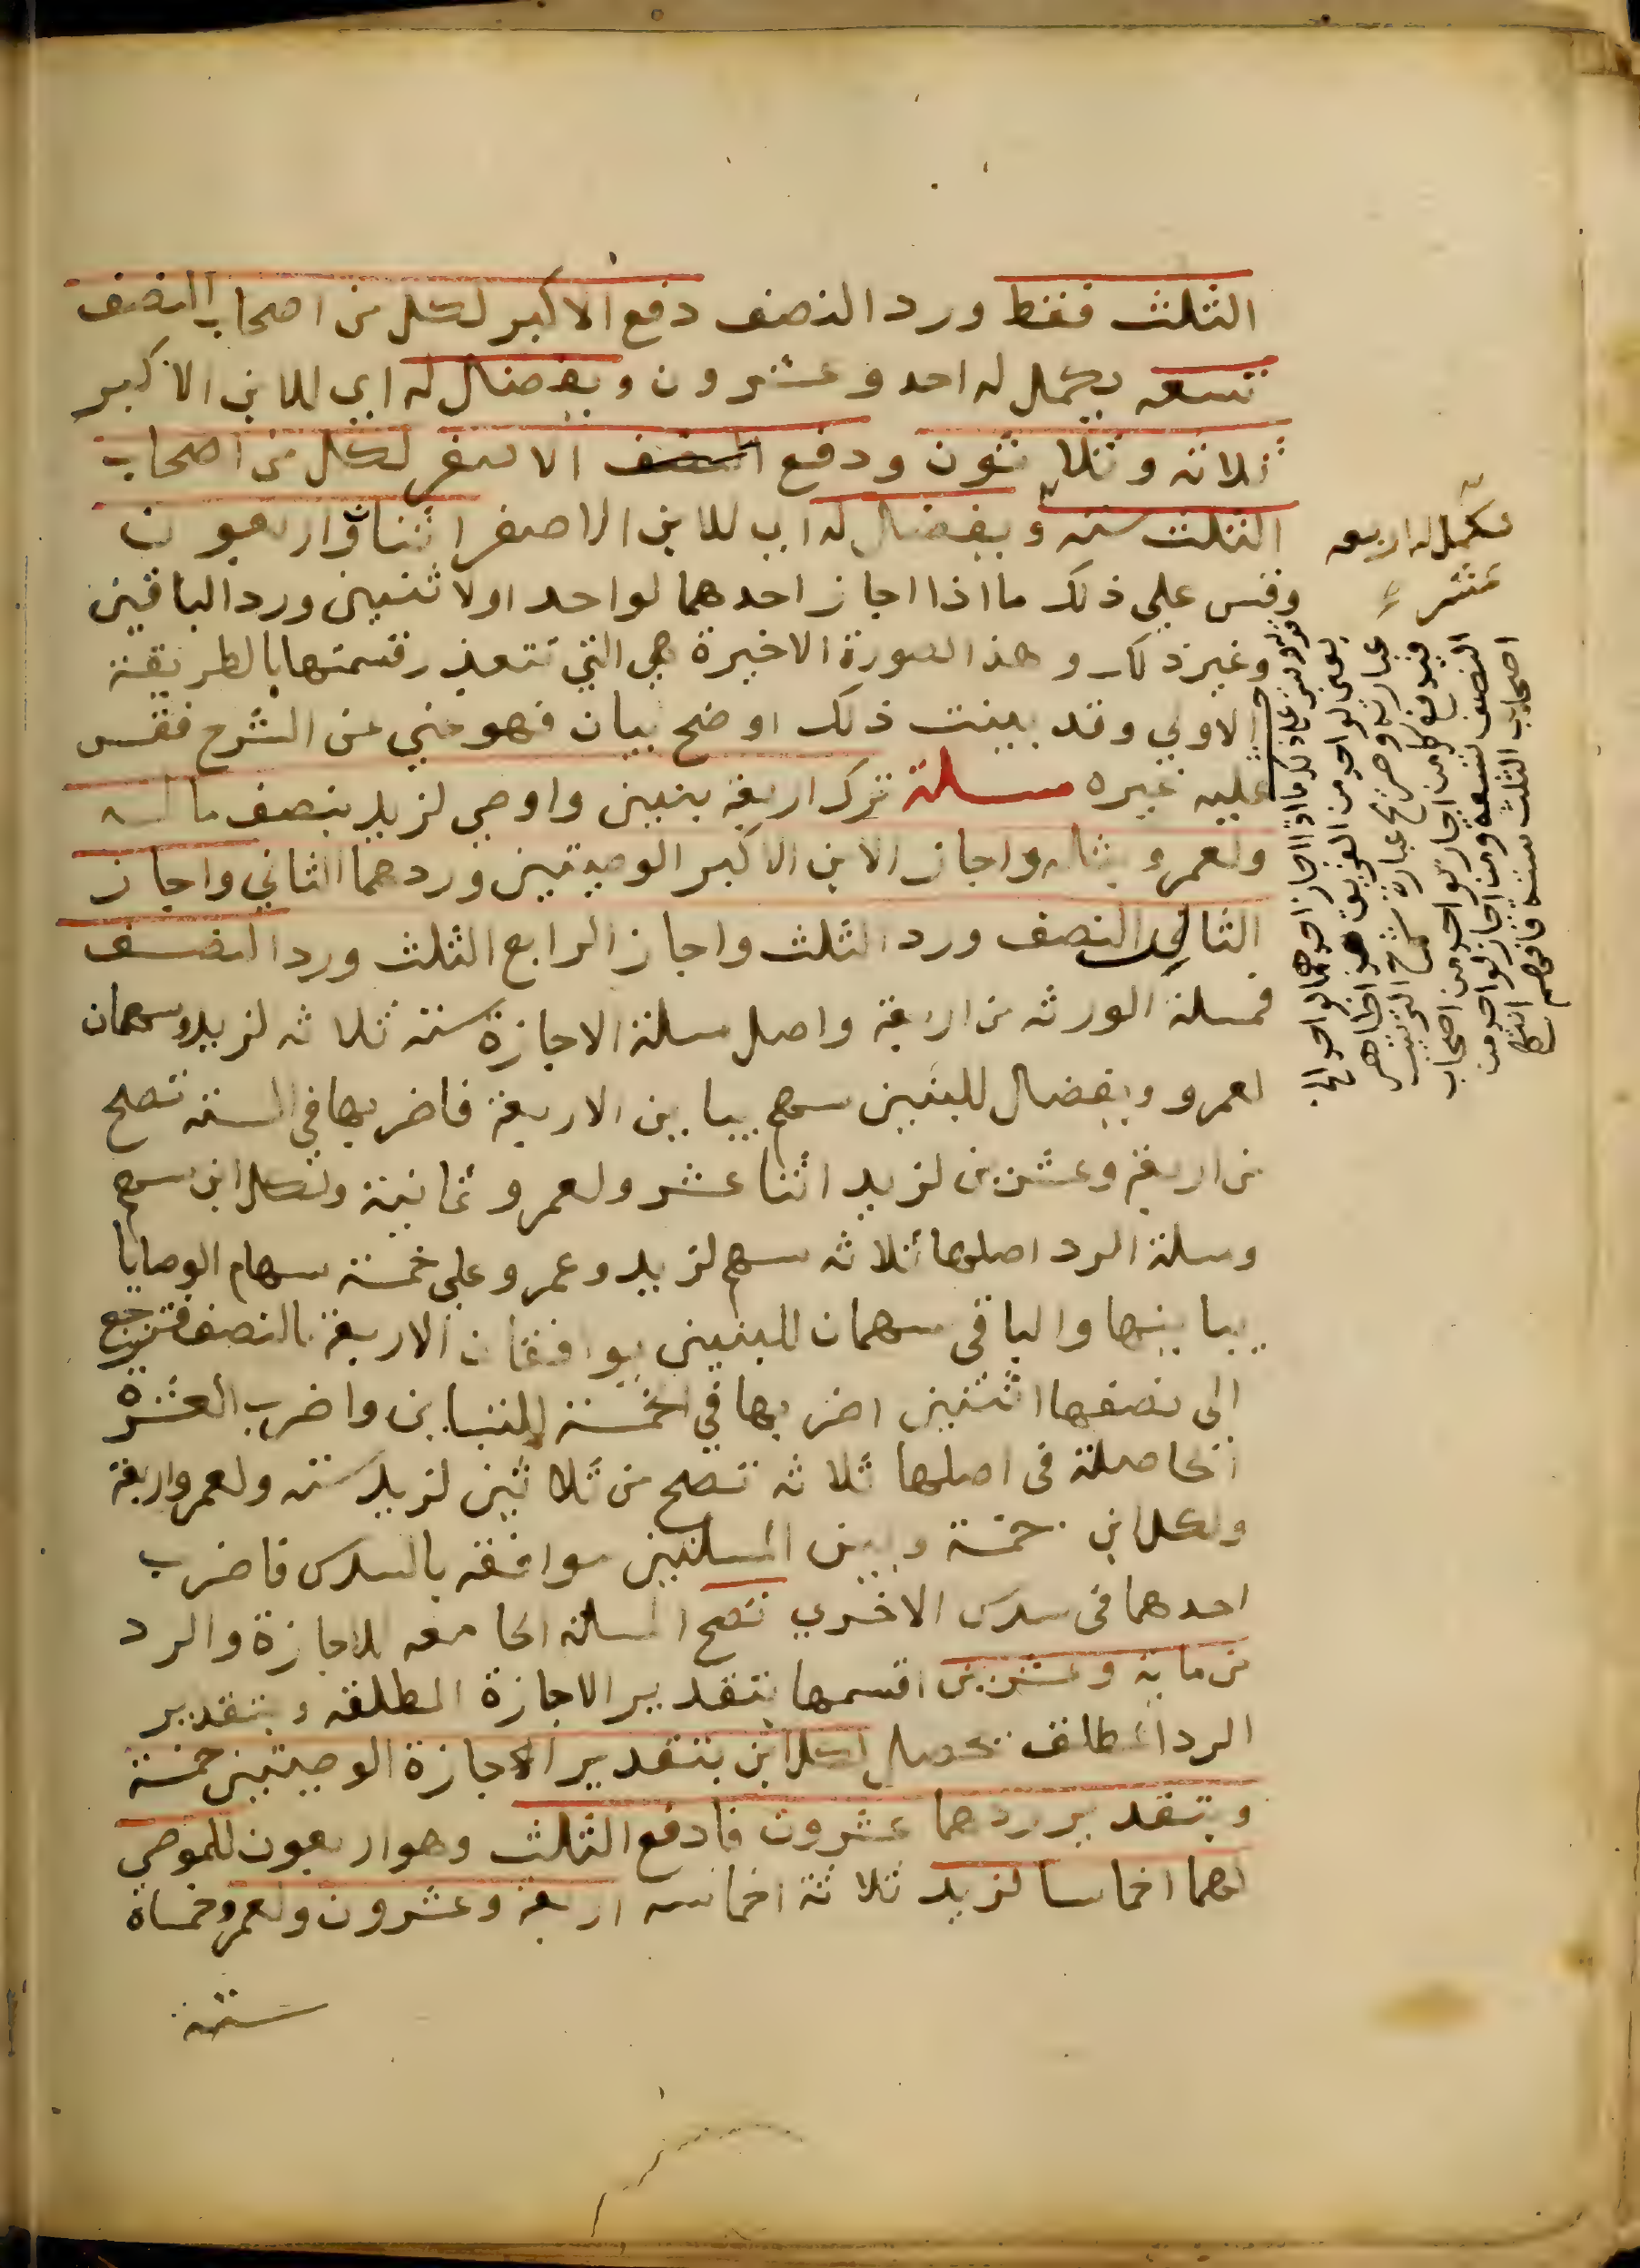 الثلث فقط ورد النصف دفع الاكبر لكل من اصحاب النصف
تسعه يكمل له احد وعشرون ويفضل له اي للابن الاكبر
ثلاثه وثلاثون ودفع النصف الاصغر لكل من اصحاب
الثلث سته ويفضل له اي للابن الاصغر اثنان واربعون
وقس علي ذلك ما اذا اجاز احدهما لواحد او لاثنين ورد الباقين
وغير ذلك وهذا الصورة الاخيرة هي التي تتعذر قسمتها بالطريقة
الاولي وقد بينت ذلك اوضح بيان فهو مني عن الشرح فقس
عليه غيره مسلة ترك اربعة بنين واوصي لزيد بنصف ماله
ولعمرو بثلثه واجاز الابن الاكبر الوصيتين وردهما الثاني واجاز
الثالث النصف ورد الثلث واجاز الرابع الثلث ورد النصف
فمسلة الورثه من اربعة واصل مسلة الاجازة ستة ثلاثه لزيد وسهمان
لعمرو ويفضل للبنين سهم يباين الاربعة فاضربها في الستة تصح
من اربعة وعشرين لزيد اثنا عشر ولعمرو ثمانية ولكل ابن سهم
ومسلة الرد اصلها ثلاثه سهم لزيد وعمرو علي خمسة سهام الوصايا
يباينها والباقي سهمان للبنين يوافقان الاربعة بالنصف فترجع
الى نصفها اثنين اضربها في الخمسة للتباين واضرب العشرة
الحاصلة في اصلها ثلاثه تصح من ثلاثين لزيد سته ولعمرو اربعة
ولكل ابن خمسة وبين المسلتين موافقه بالسدس فاضرب
احدهما في سدس الاخري تصح المسلة الجامعه للاجازة والرد
من ماية وعشرين اقسمها بتقدير الاجازة المطلقه وبتقدير
الرد المطلق يحصل لكل ابن بتقدير الاجازة الوصيتين خمسة
وبتقدير ردهما عشرون فادفع الثلث وهو اربعون للموصي
لهما اخماسا لزيد ثلاثة اخماسه اربعة وعشرون ولعمرو خمساه
ستة
يكمل له اربعه
عشر
قوله وقس على ذلك ما اذا اجاز احدهما لواحد الخ
يعني لواحد من الفريق هذا ظاهر
عبارته وصريح عبارة شرح الترتيب
فيدفع كل من اجاز لواحد من اصحاب
النصف تسعه ومن اجاز لواحد من
اصحاب الثلث سته فافهم انتهى